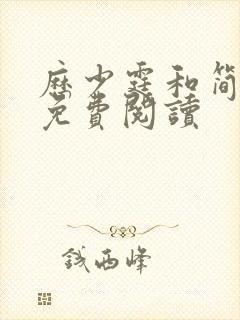 历少霆和简
免費閱讀
钱西峰